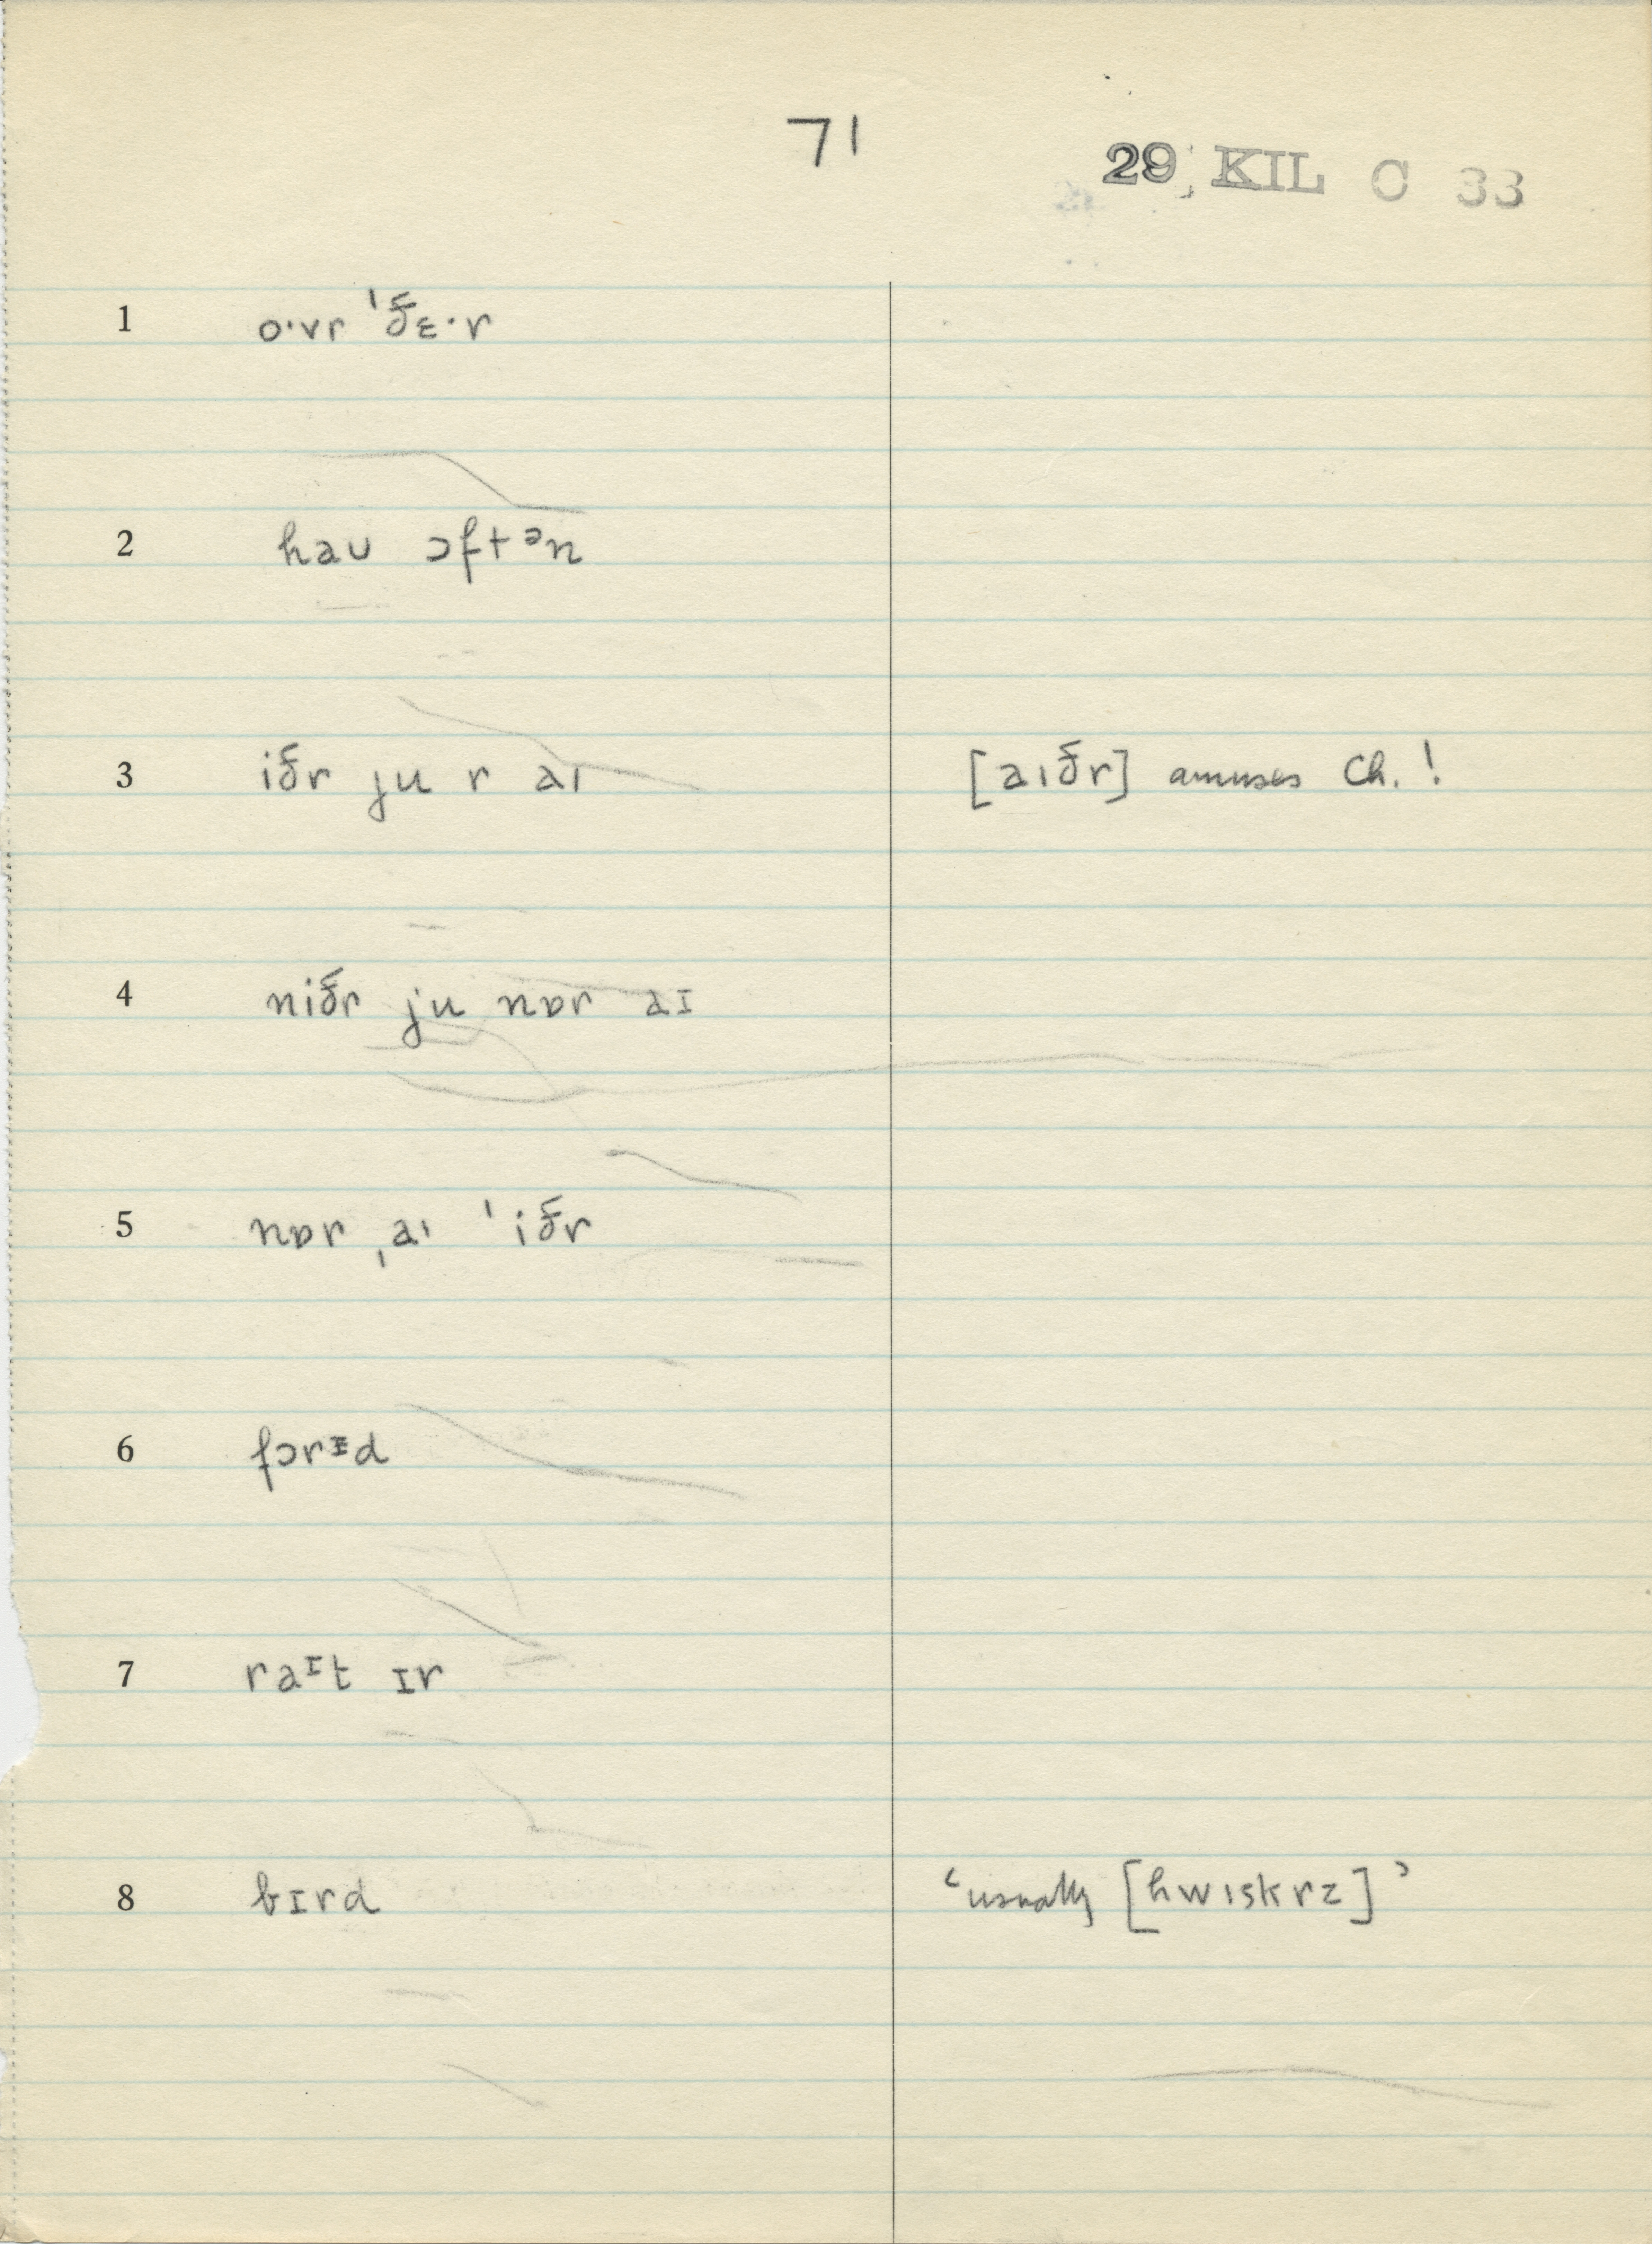 71
29 KIL C 33
1 o·vr ˈðɛ·r
2 haʊ ɔftᵊn
3 iðr ju r aɪ [aɪðr] amuses Ch.!
4 niðr ju nɒr aɪ
5 nɒr ˌaɪ ˈiðr
6 fɔrᵻd
7 raᶦt ɪr
8 bɪrd ‘usually [hwɪskrz]’